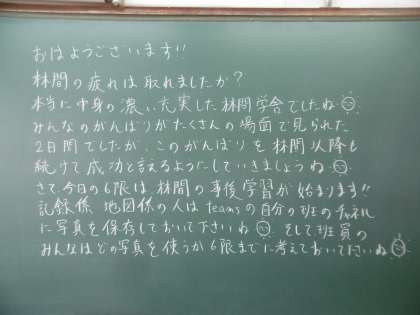 おはようございます!!
林間の疲れは取れましたか?
本当に中身の濃い、充実した林間学舎でしたね
みんなのがんばりがたくさんの場面で見られた
2日間でしたが、このがんばりを林間以降も
続けて成功と言えるようにしていきましょうね
さて、今日の6限は林間の事後学習が始まります!!
記録係 地図係の人はteamsの自分の班のチャネル
に写真を保存しておいて下さいね そして班員の
みんなはどの写真を使うか6限までに考えておいて下さいね